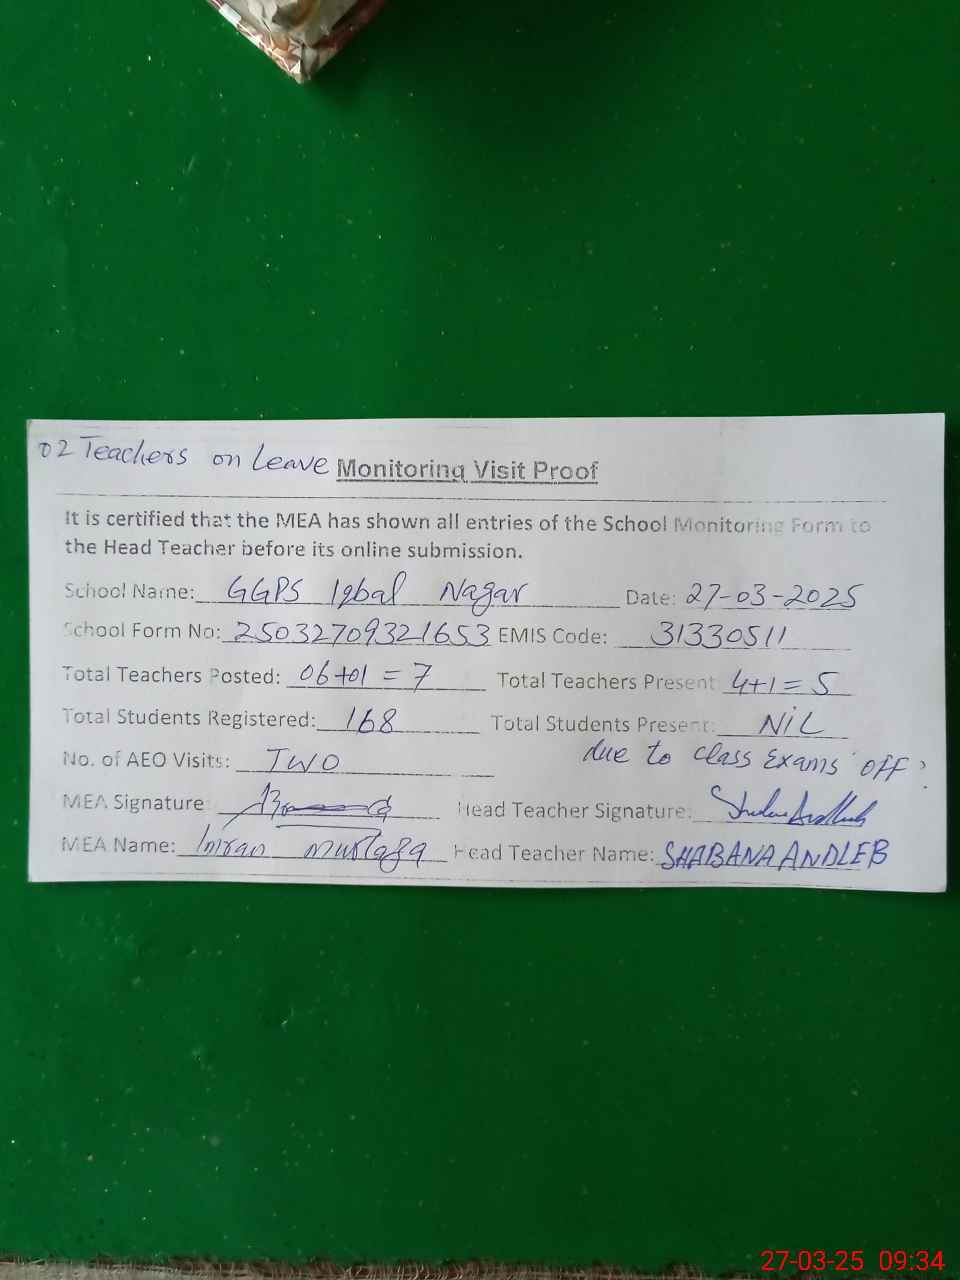 02 Teachers on Leave Monitoring Visit Proof
It is certified that the MEA has shown all entries of the School Monitoring Form to
the Head Teacher before its online submission.
School Name: GGPS Iqbal Nagar Date: 27-03-2025
School Form No: 25032709321653 EMIS Code: 31330511
Total Teachers Posted: 06+01 = 7 Total Teachers Present: 4+1 = 5
Total Students Registered: 168 Total Students Present: NiL
No. of AEO Visits: Two due to class Exams off
MEA Signature: Head Teacher Signature:
MEA Name: Imran Mustafa Head Teacher Name: SHABANA ANDLEB
27-03-25 09:34